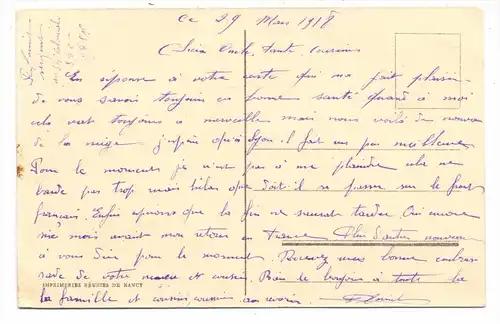 Ce 29 Mars 1918
Chers Oncle, Tante, Cousines
En réponse à votre carte qui m'a fait plaisir
de vous savoir toujours en bonne santé quand à moi
cela va toujours à merveille mais nous voilà de nouveau
de la neige j'espère qu'à Lyon il fait un peu meilleure
Pour le moment je n'ai pas à me plaindre cela ne
barde pas trop mais hélas que doit-il se passer sur le front
français. Enfin espérons que la fin ne saurait tarder. Oui encore
mois avant mon retour en France. Plus d'autres nouveau
à vous dire pour le moment. Recevez mes bonne embras-
sade de votre neveu et cousin. Bien le bonjour à toute la
la famille et cousins, cousines au revoir.
IMPRIMERIES RÉUNIES DE NANCY